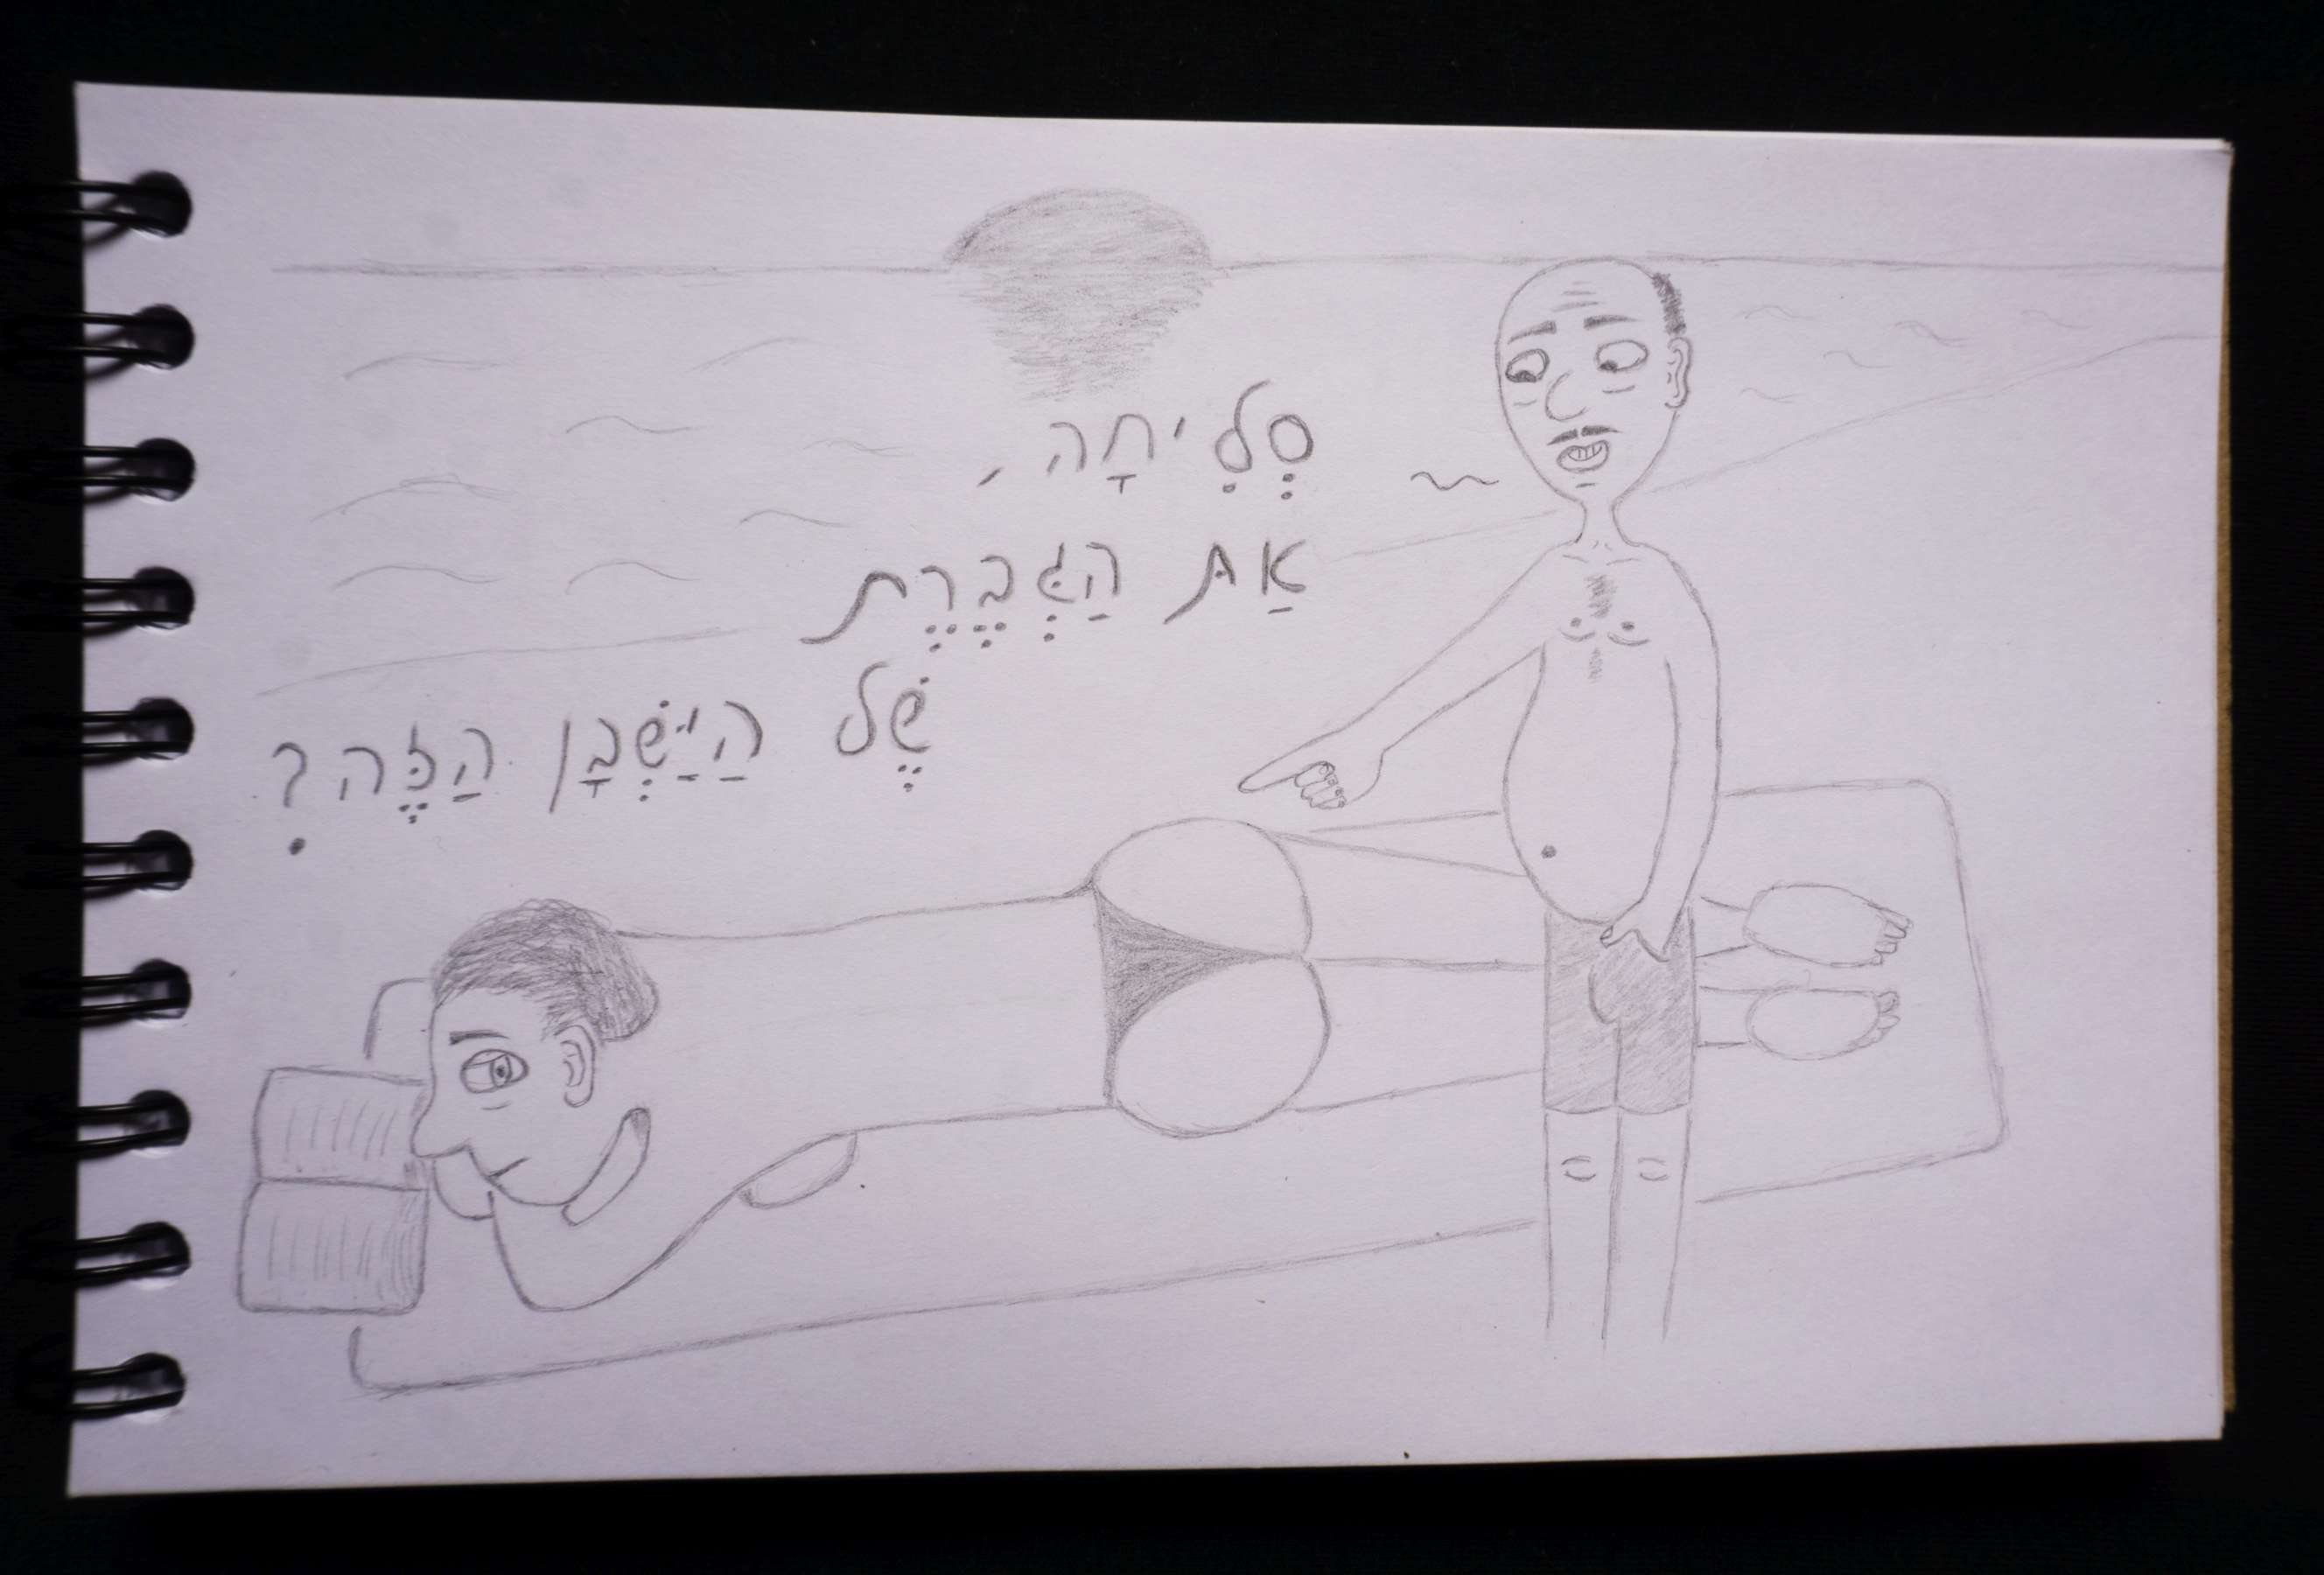 סְלִיחָה,
אַתְּ הַגְּבֶרֶת
שֶׁל הַיַּשְׁבָן הַזֶּה?